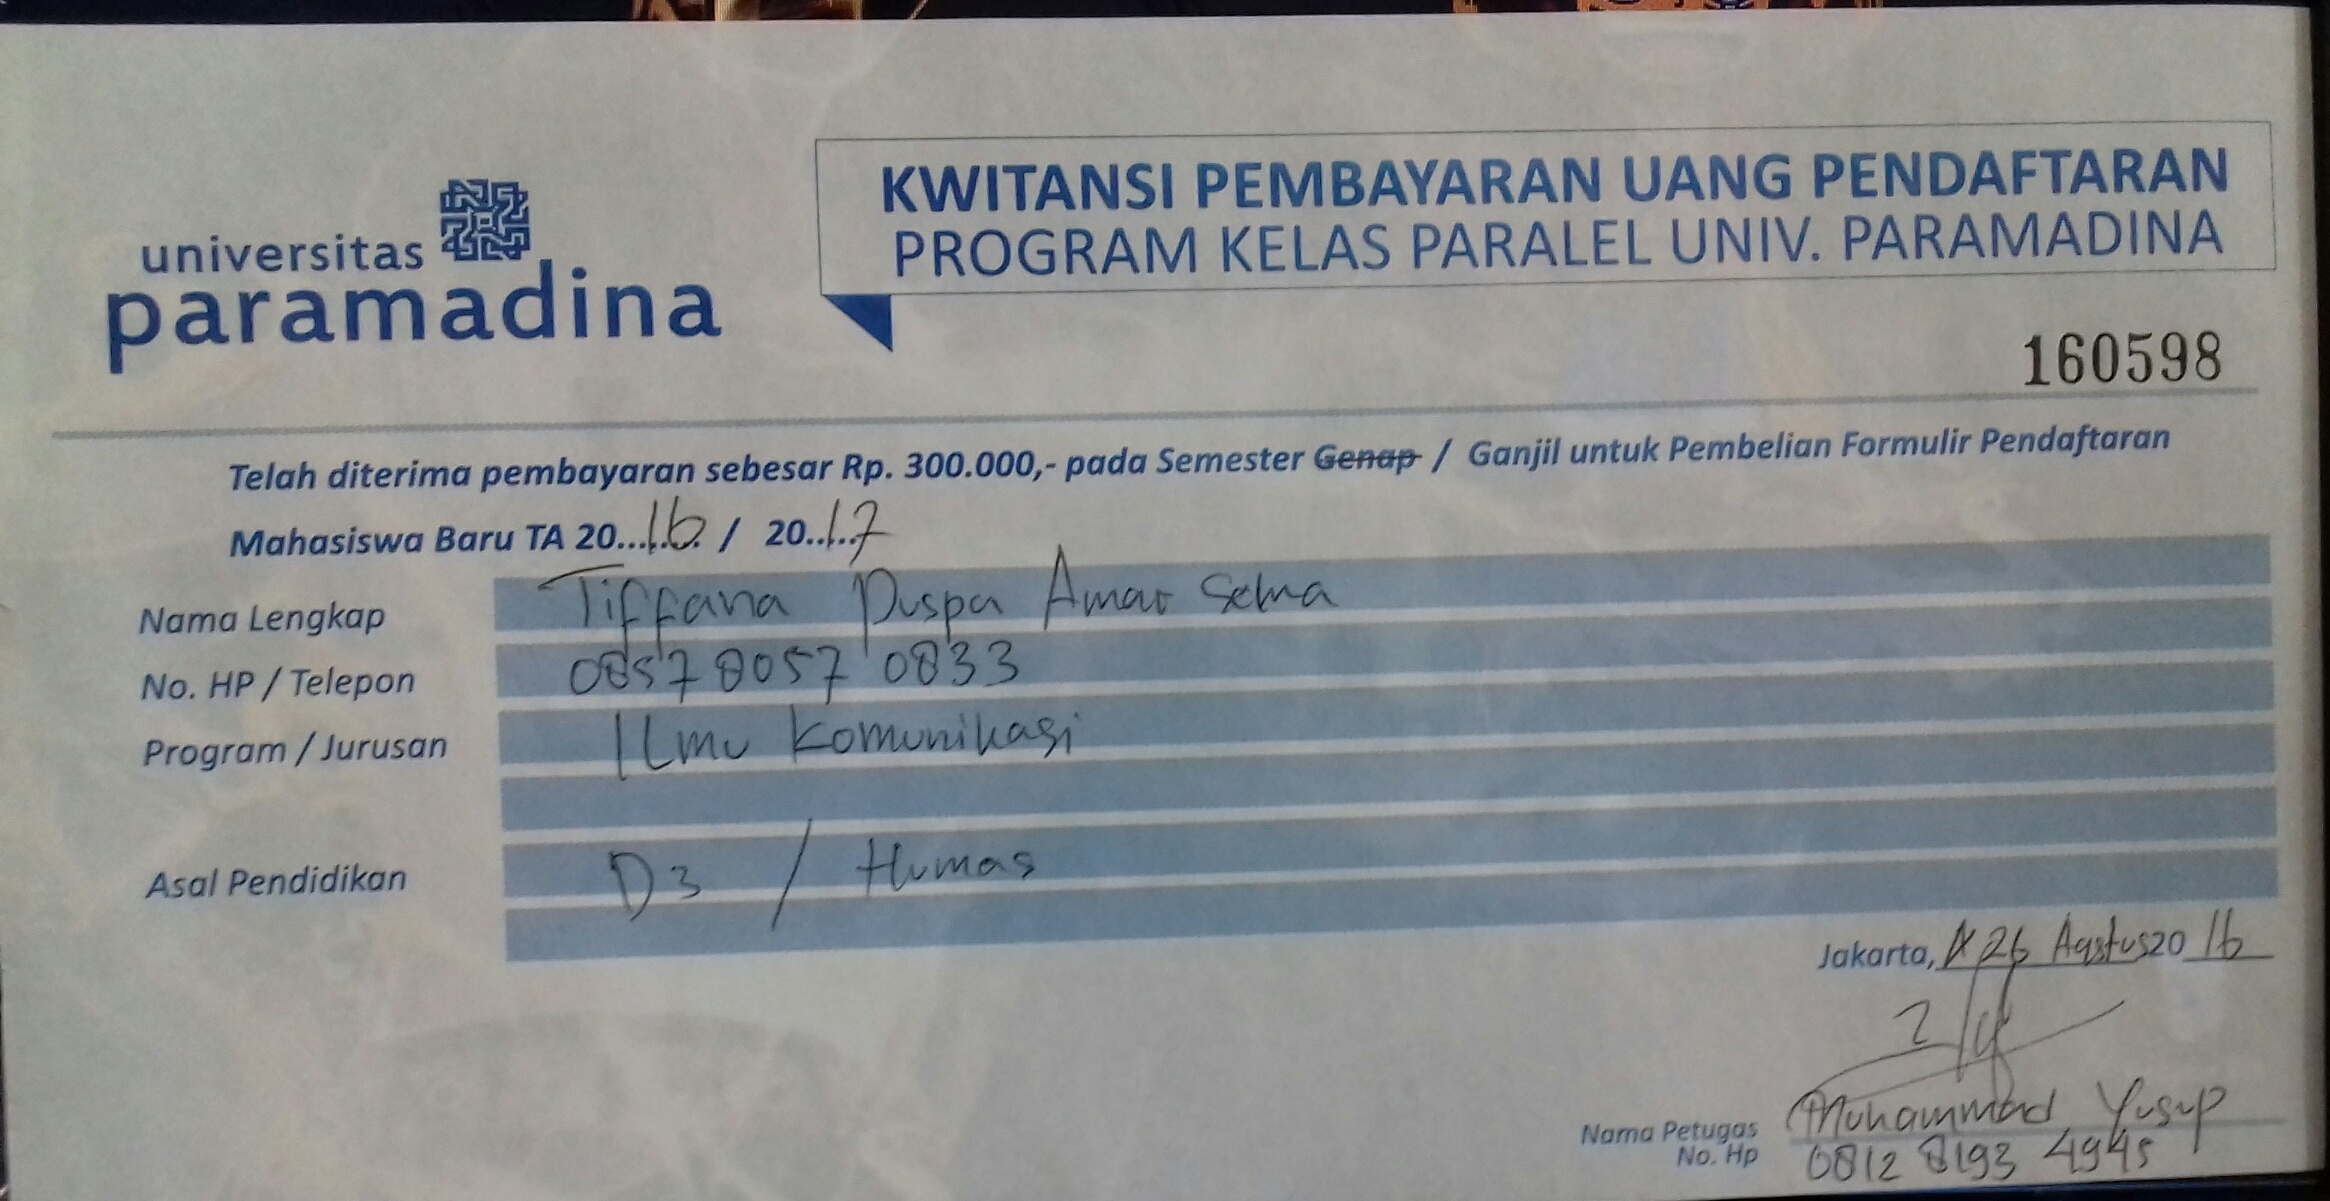 universitas
paramadina
KWITANSI PEMBAYARAN UANG PENDAFTARAN
PROGRAM KELAS PARALEL UNIV. PARAMADINA
160598
Telah diterima pembayaran sebesar Rp. 300.000,- pada Semester Genap / Ganjil untuk Pembelian Formulir Pendaftaran
Mahasiswa Baru TA 20...16 / 20...17
Nama Lengkap Tiffana Puspa Amar
No. HP / Telepon 0857 8057 0833
Program / Jurusan Ilmu Komunikasi
Asal Pendidikan D3 / Humas
Jakarta, 26 Agstus 20 16
Nama Petugas Muhammad Yusup
No. Hp 0812 8193 4945